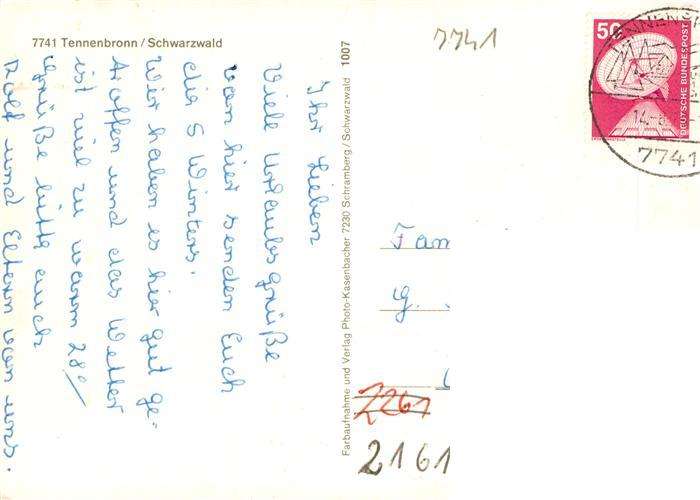 7741 Tennenbronn / Schwarzwald
Ihr Lieben
Viele Urlaubsgrüße
von hier senden Euch
die 5 Winters.
Wir haben es hier gut ge-
troffen und das Wetter
ist viel zu warm 28°
Grüße bitte auch
Rolf und Eltern von uns.
Farbaufnahme und Verlag Photo-Kasenbacher 7230 Schramberg / Schwarzwald 1007
7741
50
DEUTSCHE BUNDESPOST
7741
Fam
G.
2261
2161